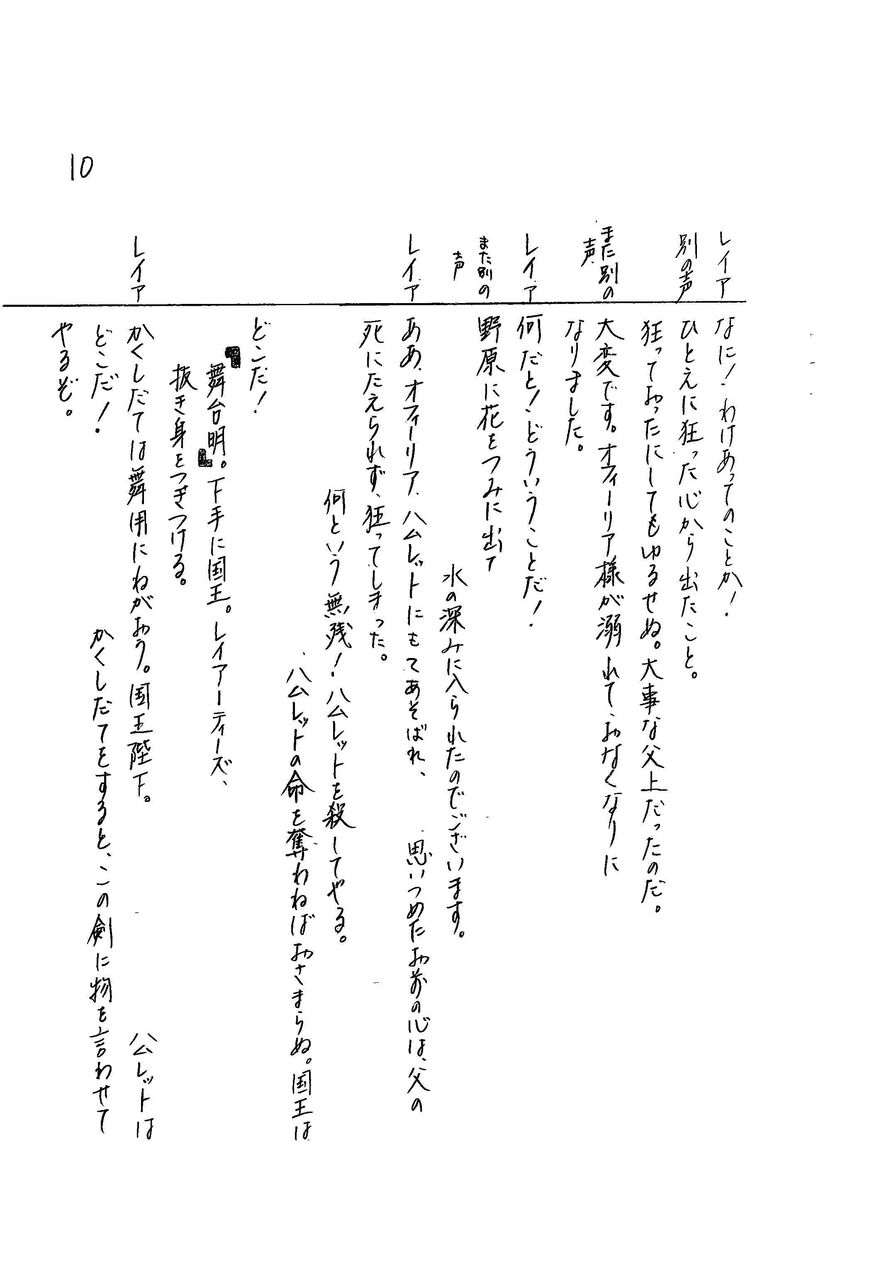 10
レイア なに！わけあってのことか！
別の声 ひとえに狂った心から出たこと。
狂っておったにしてもゆるせぬ。大事な父上だったのだ。
また別の声 大変です。オフィーリア様が溺れて、おなくなりに
なりました。
レイア 何だと！どういうことだ！
また別の声 野原に花をつみに出て
水の深みに入られたのでございます。
レイア ああ、オフィーリア、ハムレットにもてあそばれ、思いつめたお前の心は、父の
死にたえられず、狂ってしまった。
何という無残！ハムレットを殺してやる。
ハムレットの命を奪わねばおさまらぬ。国王は
どこだ！
舞台明。下手に国王。レイアーティーズ、
抜き身をつきつける。
レイア かくしだては無用にねがおう。国王陛下。ハムレットは
どこだ！かくしだてをすると、この剣に物を言わせて
やるぞ。